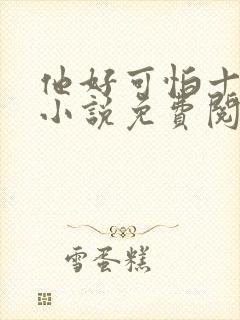 他好可怕十
小说免費閱
雪蛋糕